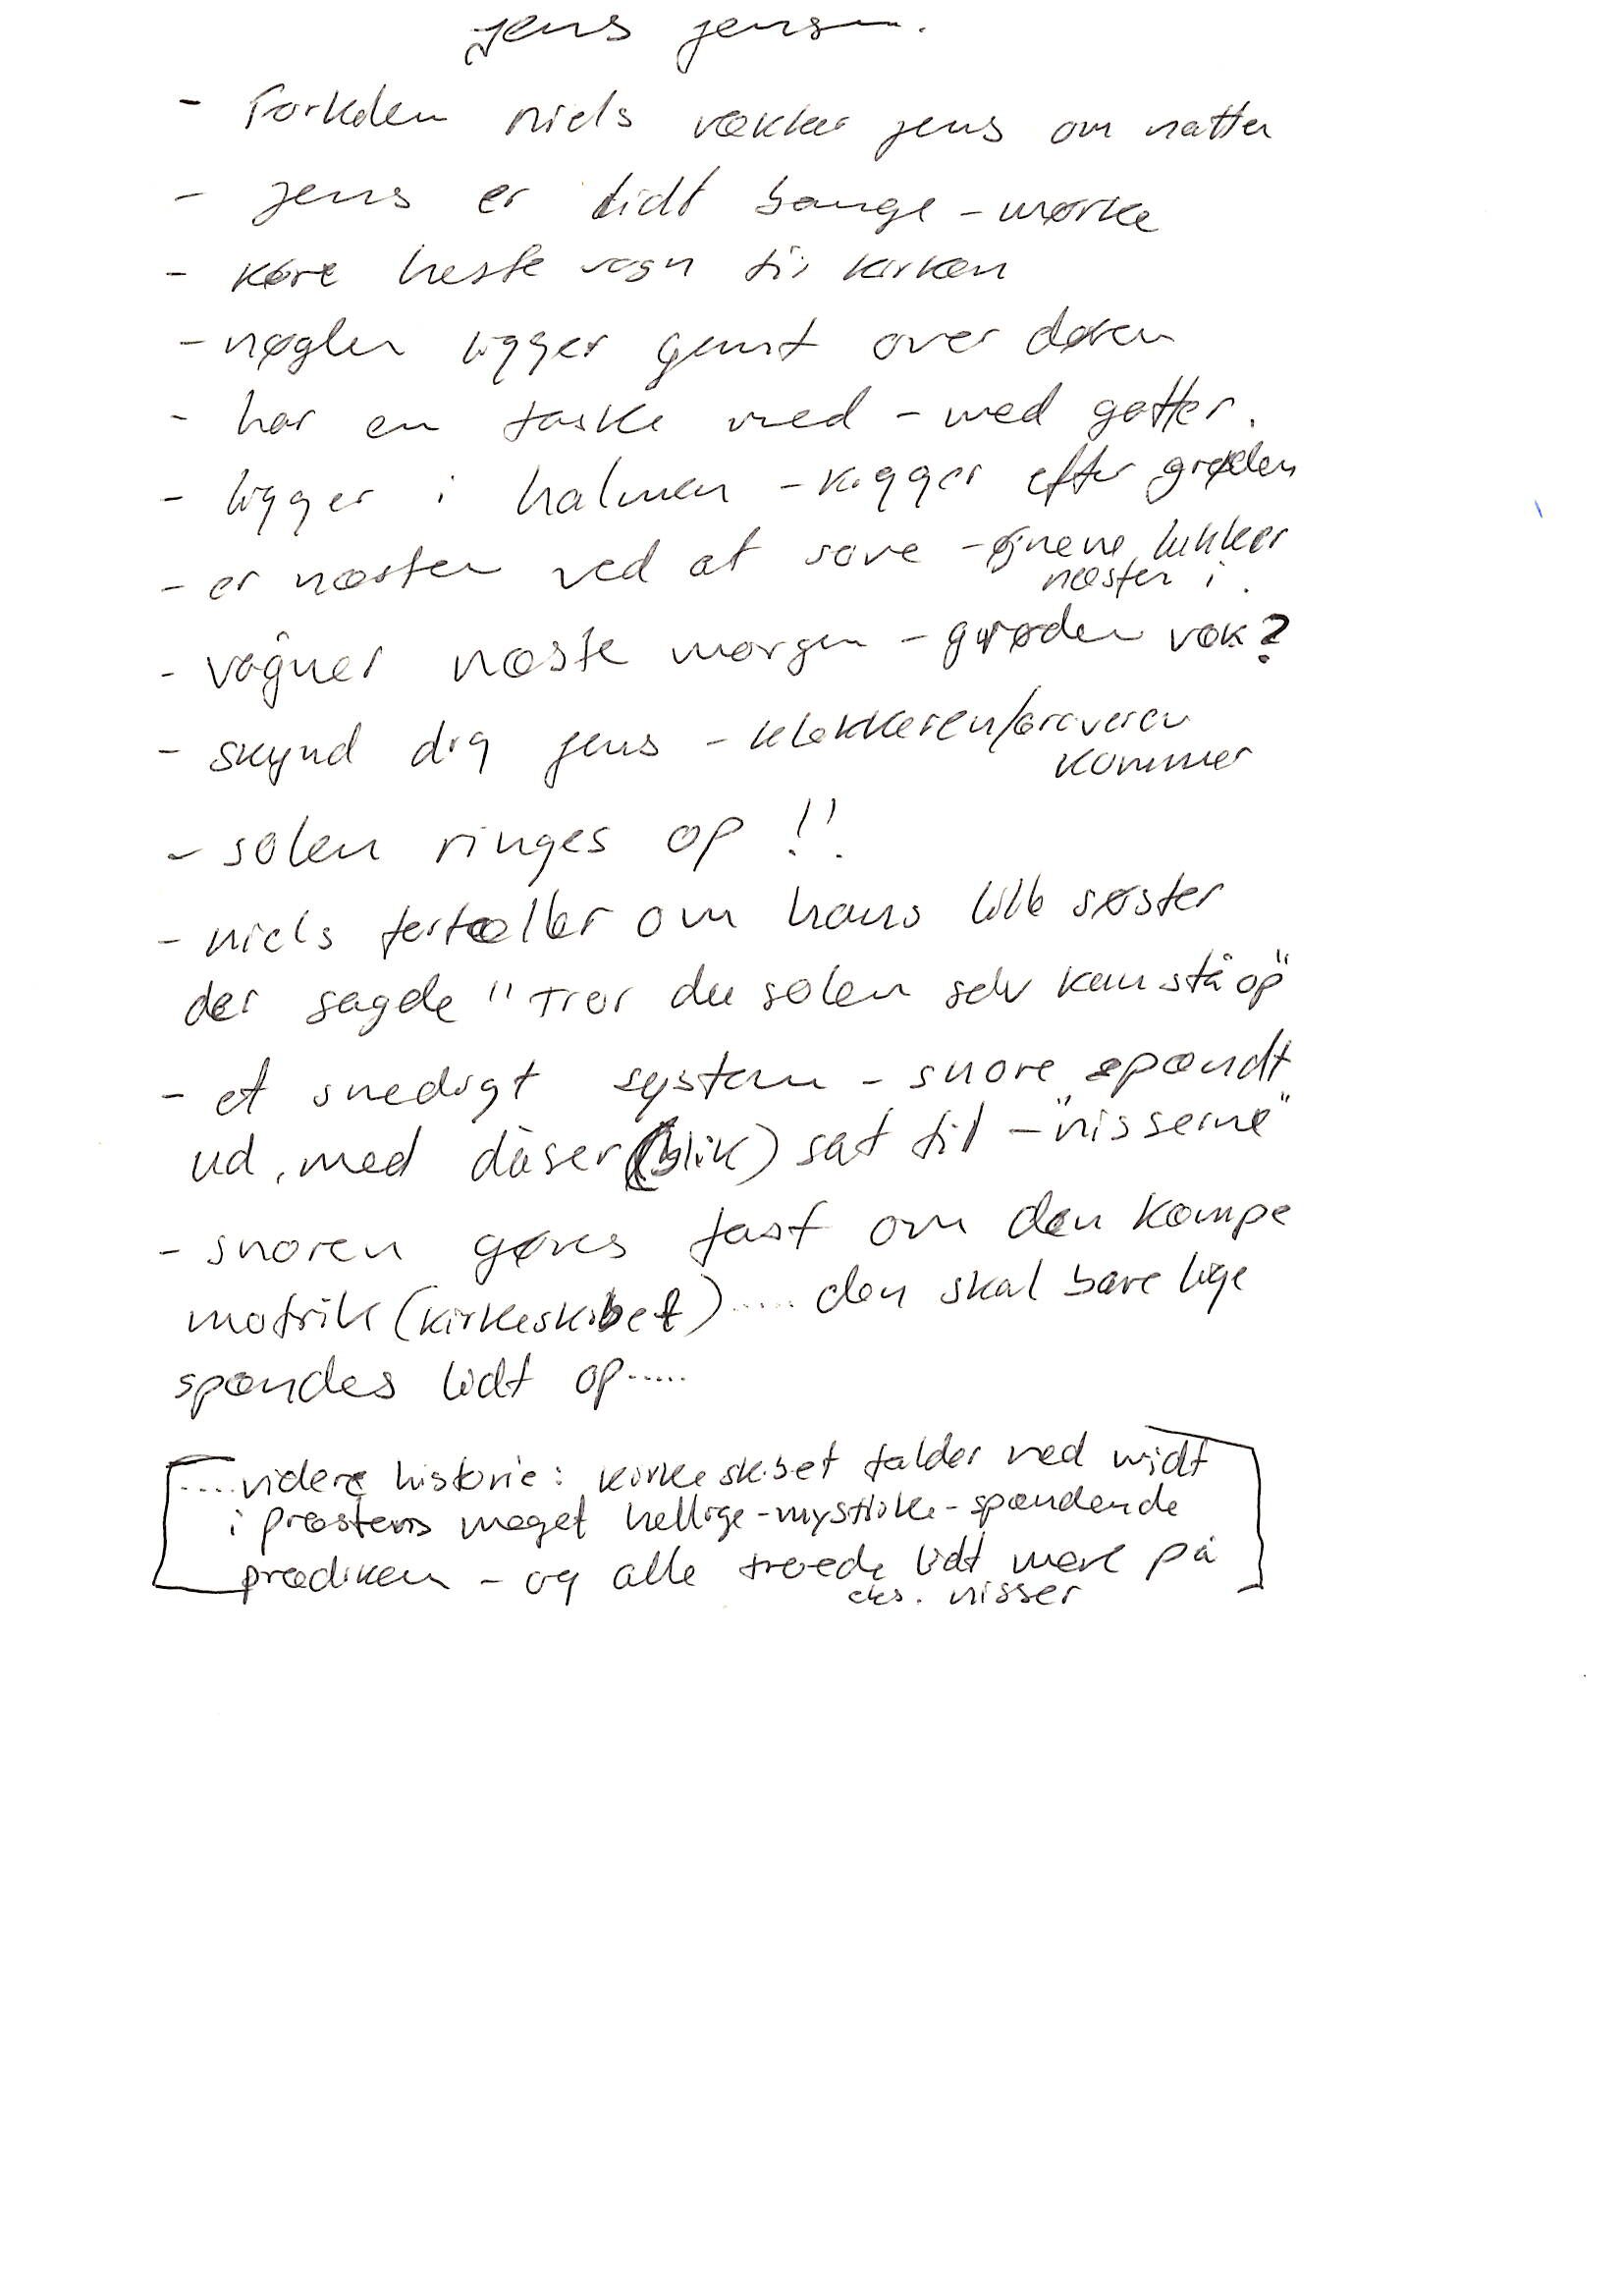 jens jensen.
- Forkden niels vækker jens om natten
- jens er lidt bange - mørke
- køre heste vogn til kirken
- nøglen ligger gemt over døren
- har en taske med - med gotter.
- ligger i halmen - kigger efter grøden
- er næsten ved at sove - øjnene lukker
næsten i.
- vågner næste morgen - grøden væk?
- skynd dig jens - klokkeren/graveren
kommer
- solen ringes op !!
- niels fortæller om hans lille søster
der sagde "Tror du solen selv kan stå op"
- et snedigt system - snore spændt
ud, med dåser (blik) sat til - "nisserne"
- snoren gøres fast om den kæmpe
møtrik (kirkeskibet)..... den skal bare lige
spændes lidt op.....
....videre historie: kirkeskibet falder ned midt
i præstens meget hellige - mystiske - spændende
prædiken - og alle troede lidt mere på
eks. nisser